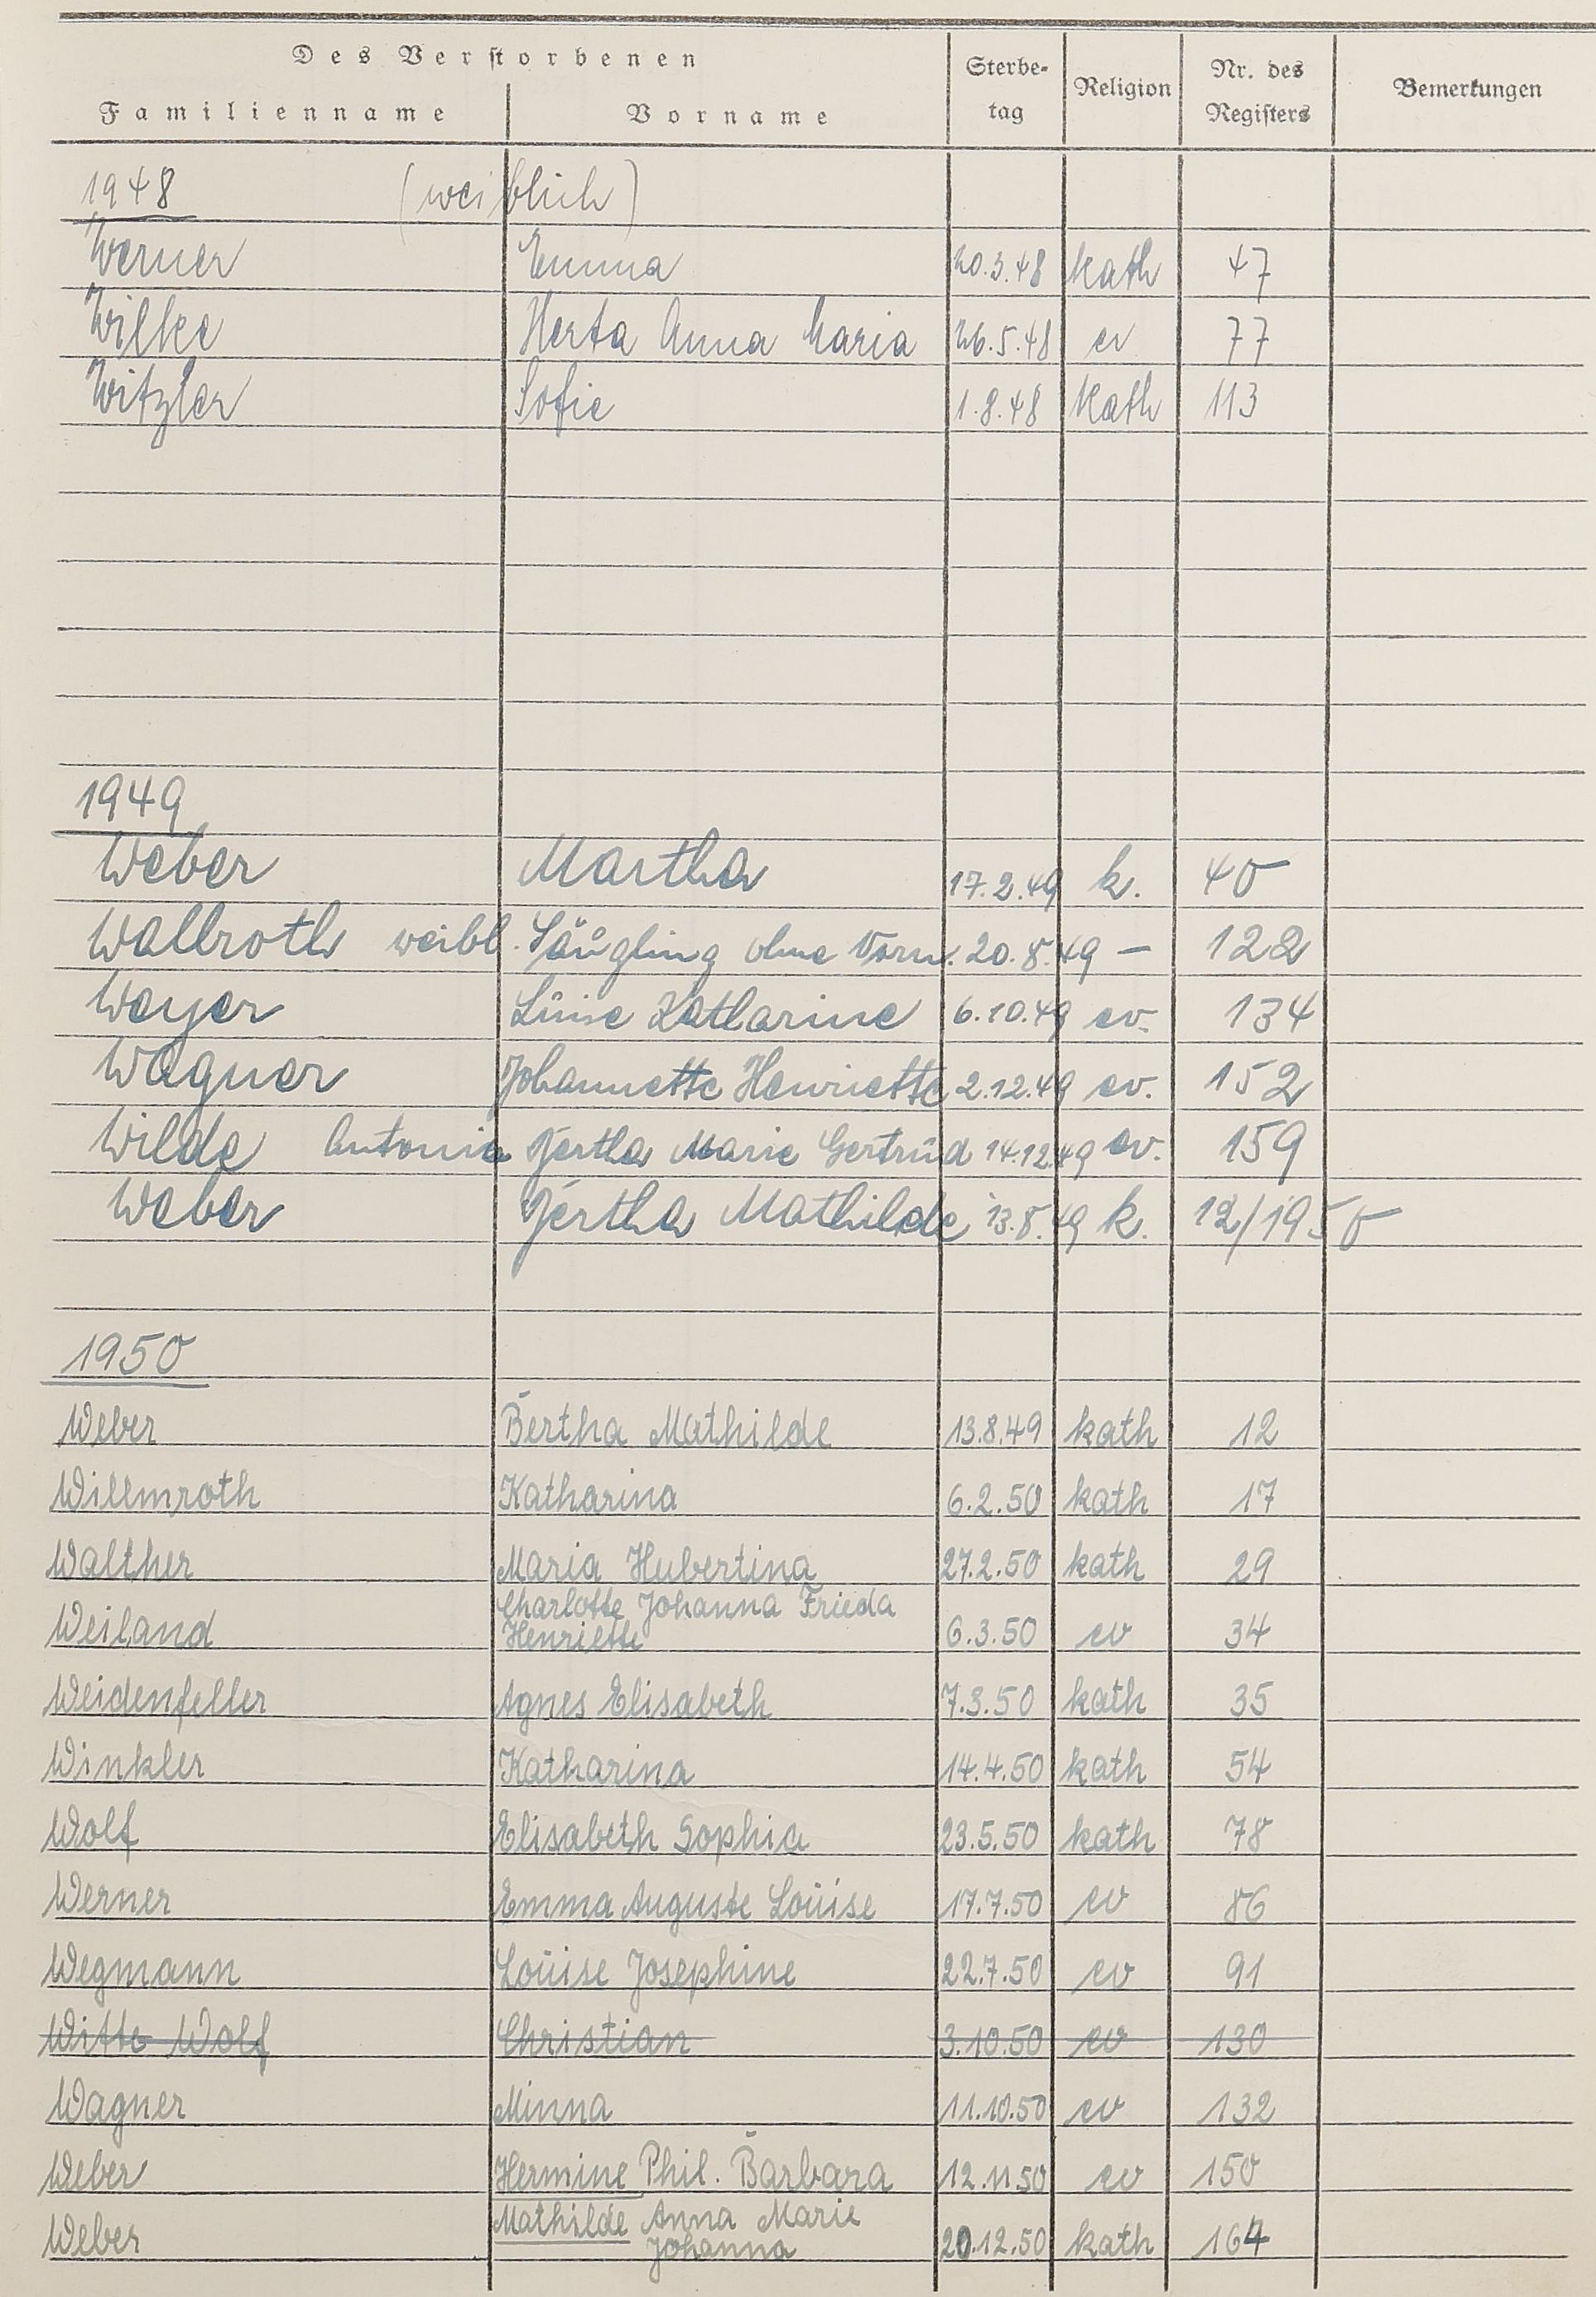 Des Verstorbenen
Familienname Vorname Sterbe-tag Religion Nr. des Registers Bemerkungen
1948 (weiblich)
Werner Emma 20.3.48 kath 47
Wilke Herta Anna Maria 26.5.48 ev 77
Witzler Sofie 1.8.48 kath 113
1949
Weber Martha 17.2.49 k. 40
Wallroth weibl. Säugling ohne Vorn. 20.8.49 — 122
Weyer Luise Katharine 6.10.49 ev. 134
Wagner Johannette Henriette 2.12.49 ev. 152
Wilde Antonie Bertha Marie Gertrud 14.12.49 ev. 159
Weber Bertha Mathilde 13.8.49 k. 12/1950
1950
Weber Bertha Mathilde 13.8.49 kath 12
Willmroth Katharina 6.2.50 kath 17
Walther Maria Hubertina 27.2.50 kath 29
Charlotte Johanna Frieda
Weiland Henriette 6.3.50 ev 34
Weidenfeller Agnes Elisabeth 7.3.50 kath 35
Winkler Katharina 14.4.50 kath 54
Wolf Elisabeth Sophia 23.5.50 kath 78
Werner Emma Auguste Louise 17.7.50 ev 86
Wegmann Louise Josephine 22.7.50 ev 91
Witte Wolf Christian 3.10.50 ev 130
Wagner Minna 11.10.50 ev 132
Weber Hermine Phil. Barbara 12.11.50 ev 150
Mathilde Anna Marie
Weber Johanna 20.12.50 kath 164